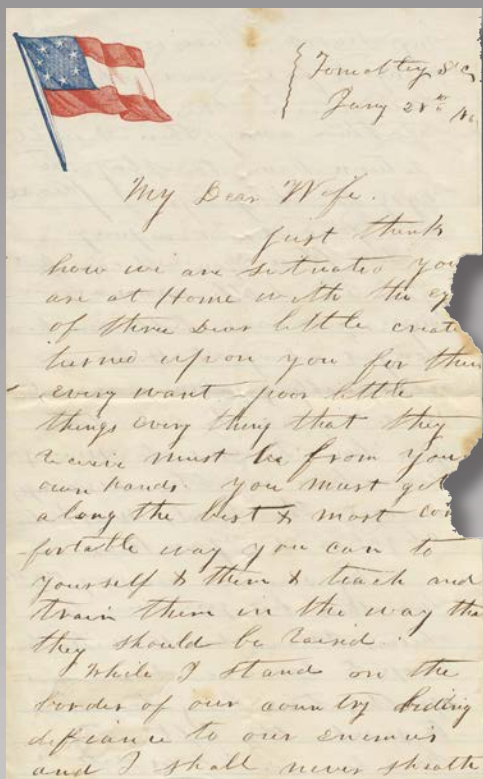 Jany 28th
My Dear Wife.
Just think
how we are situated you
are at Home with the ey
of three Dear little creat
turned upon you for their
every want poor little
things every thing that they
receive must be from your
own hands. you must get
along the best & most com
-fortable way you can to
yourself & them & teach and
train them in the way that
they should be raised.
While I stand on the
border of our country biding
defiance to our enemies
and I shall never sheath